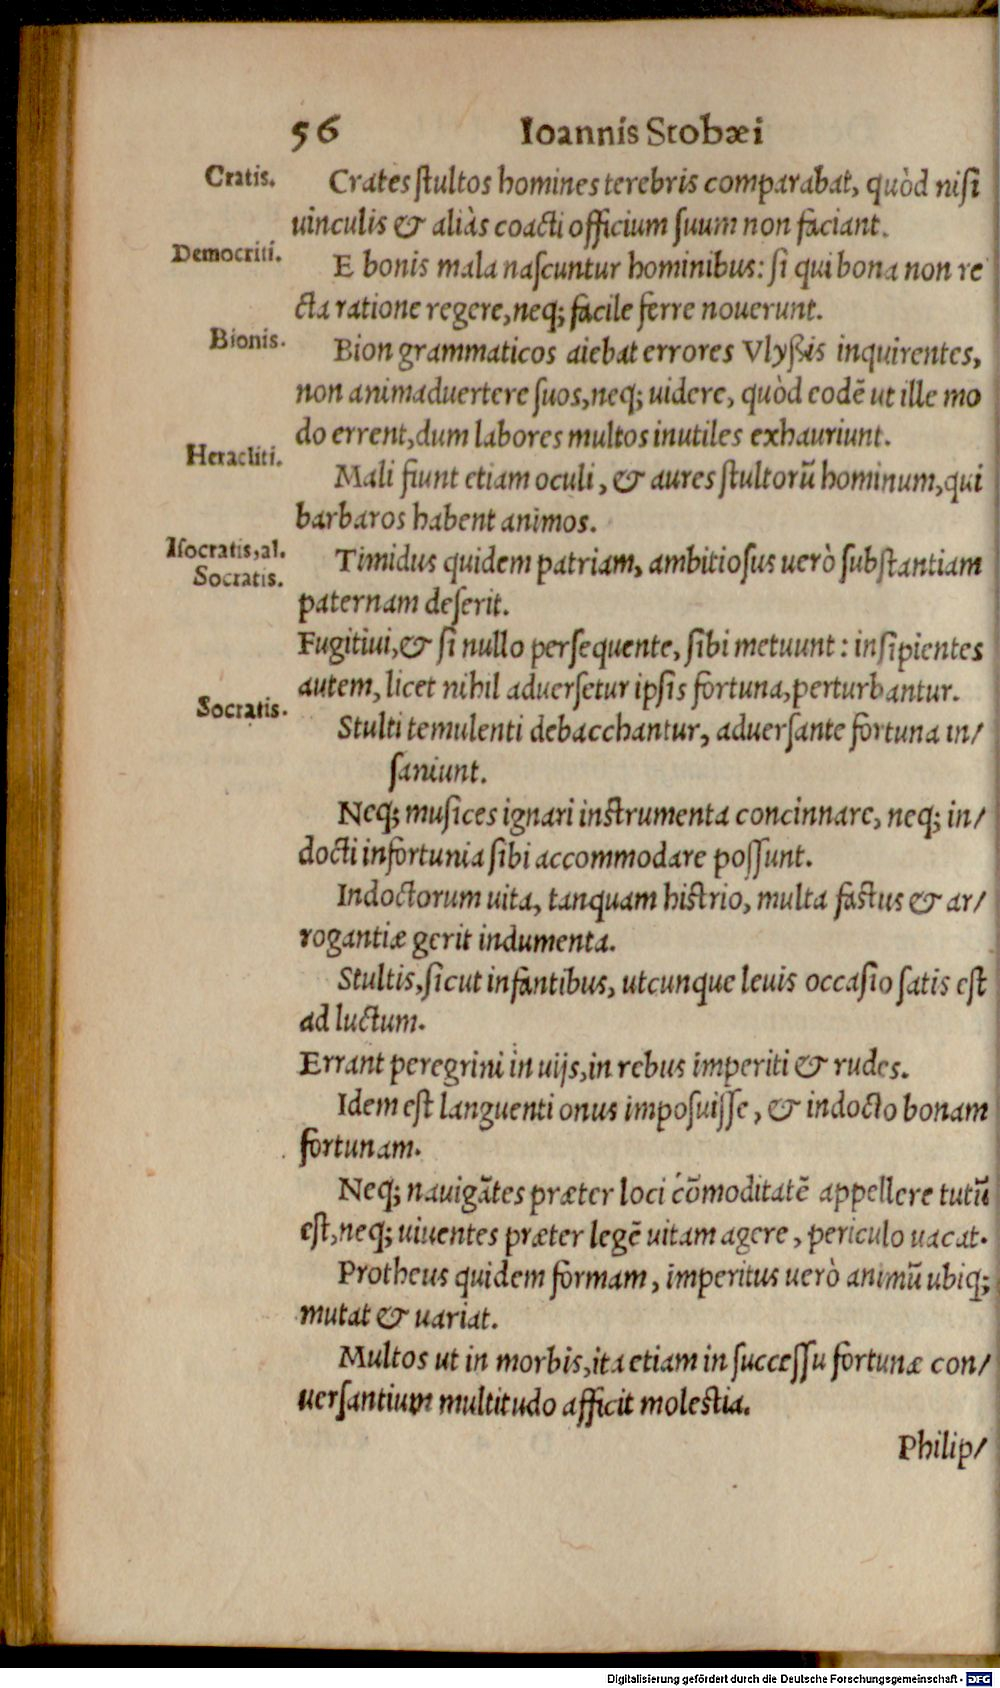 56 Ioannis Stobæi
Cratis.
Crates stultos homines terebris comparabat, quòd nisi
uinculis & aliàs coacti officium suum non faciant.
Democriti.
E bonis mala nascuntur hominibus: si qui bona non re
cta ratione regere, neq; facile ferre nouerunt.
Bionis.
Bion grammaticos aiebat errores Vlyßis inquirentes,
non animaduertere suos, neq; uidere, quòd eodē ut ille mo
do errent, dum labores multos inutiles exhauriunt.
Heracliti.
Mali fiunt etiam oculi, & aures stultorū hominum, qui
barbaros habent animos.
Isocratis, al.
Socratis.
Timidus quidem patriam, ambitiosus uerò substantiam
paternam deserit.
Fugitiui, & si nullo persequente, sibi metuunt: insipientes
autem, licet nihil aduersetur ipsis fortuna, perturbantur.
Socratis.
Stulti temulenti debacchantur, aduersante fortuna in/
saniunt.
Neq; musices ignari instrumenta concinnare, neq; in/
docti infortunia sibi accommodare possunt.
Indoctorum uita, tanquam histrio, multa fastus & ar/
rogantiæ gerit indumenta.
Stultis, sicut infantibus, utcunque leuis occasio satis est
ad luctum.
Errant peregrini in uijs, in rebus imperiti & rudes.
Idem est languenti onus imposuisse, & indocto bonam
fortunam.
Neq; nauigātes præter loci cōmoditatē appellere tutū
est, neq; uiuentes præter legē uitam agere, periculo uacat.
Protheus quidem formam, imperitus uerò animū ubiq;
mutat & uariat.
Multos ut in morbis, ita etiam in successu fortunæ con/
uersantium multitudo afficit molestia.
Philip/
Digitalisierung gefördert durch die Deutsche Forschungsgemeinschaft - DFG